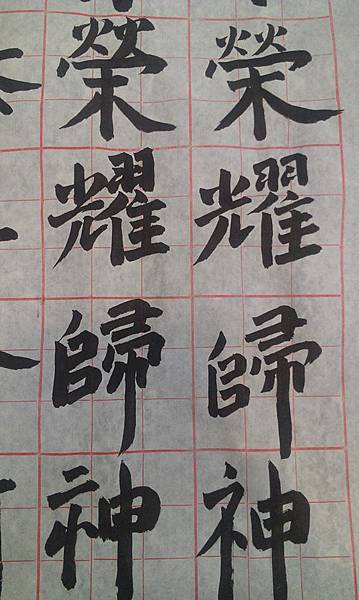 榮耀歸神
榮耀歸神